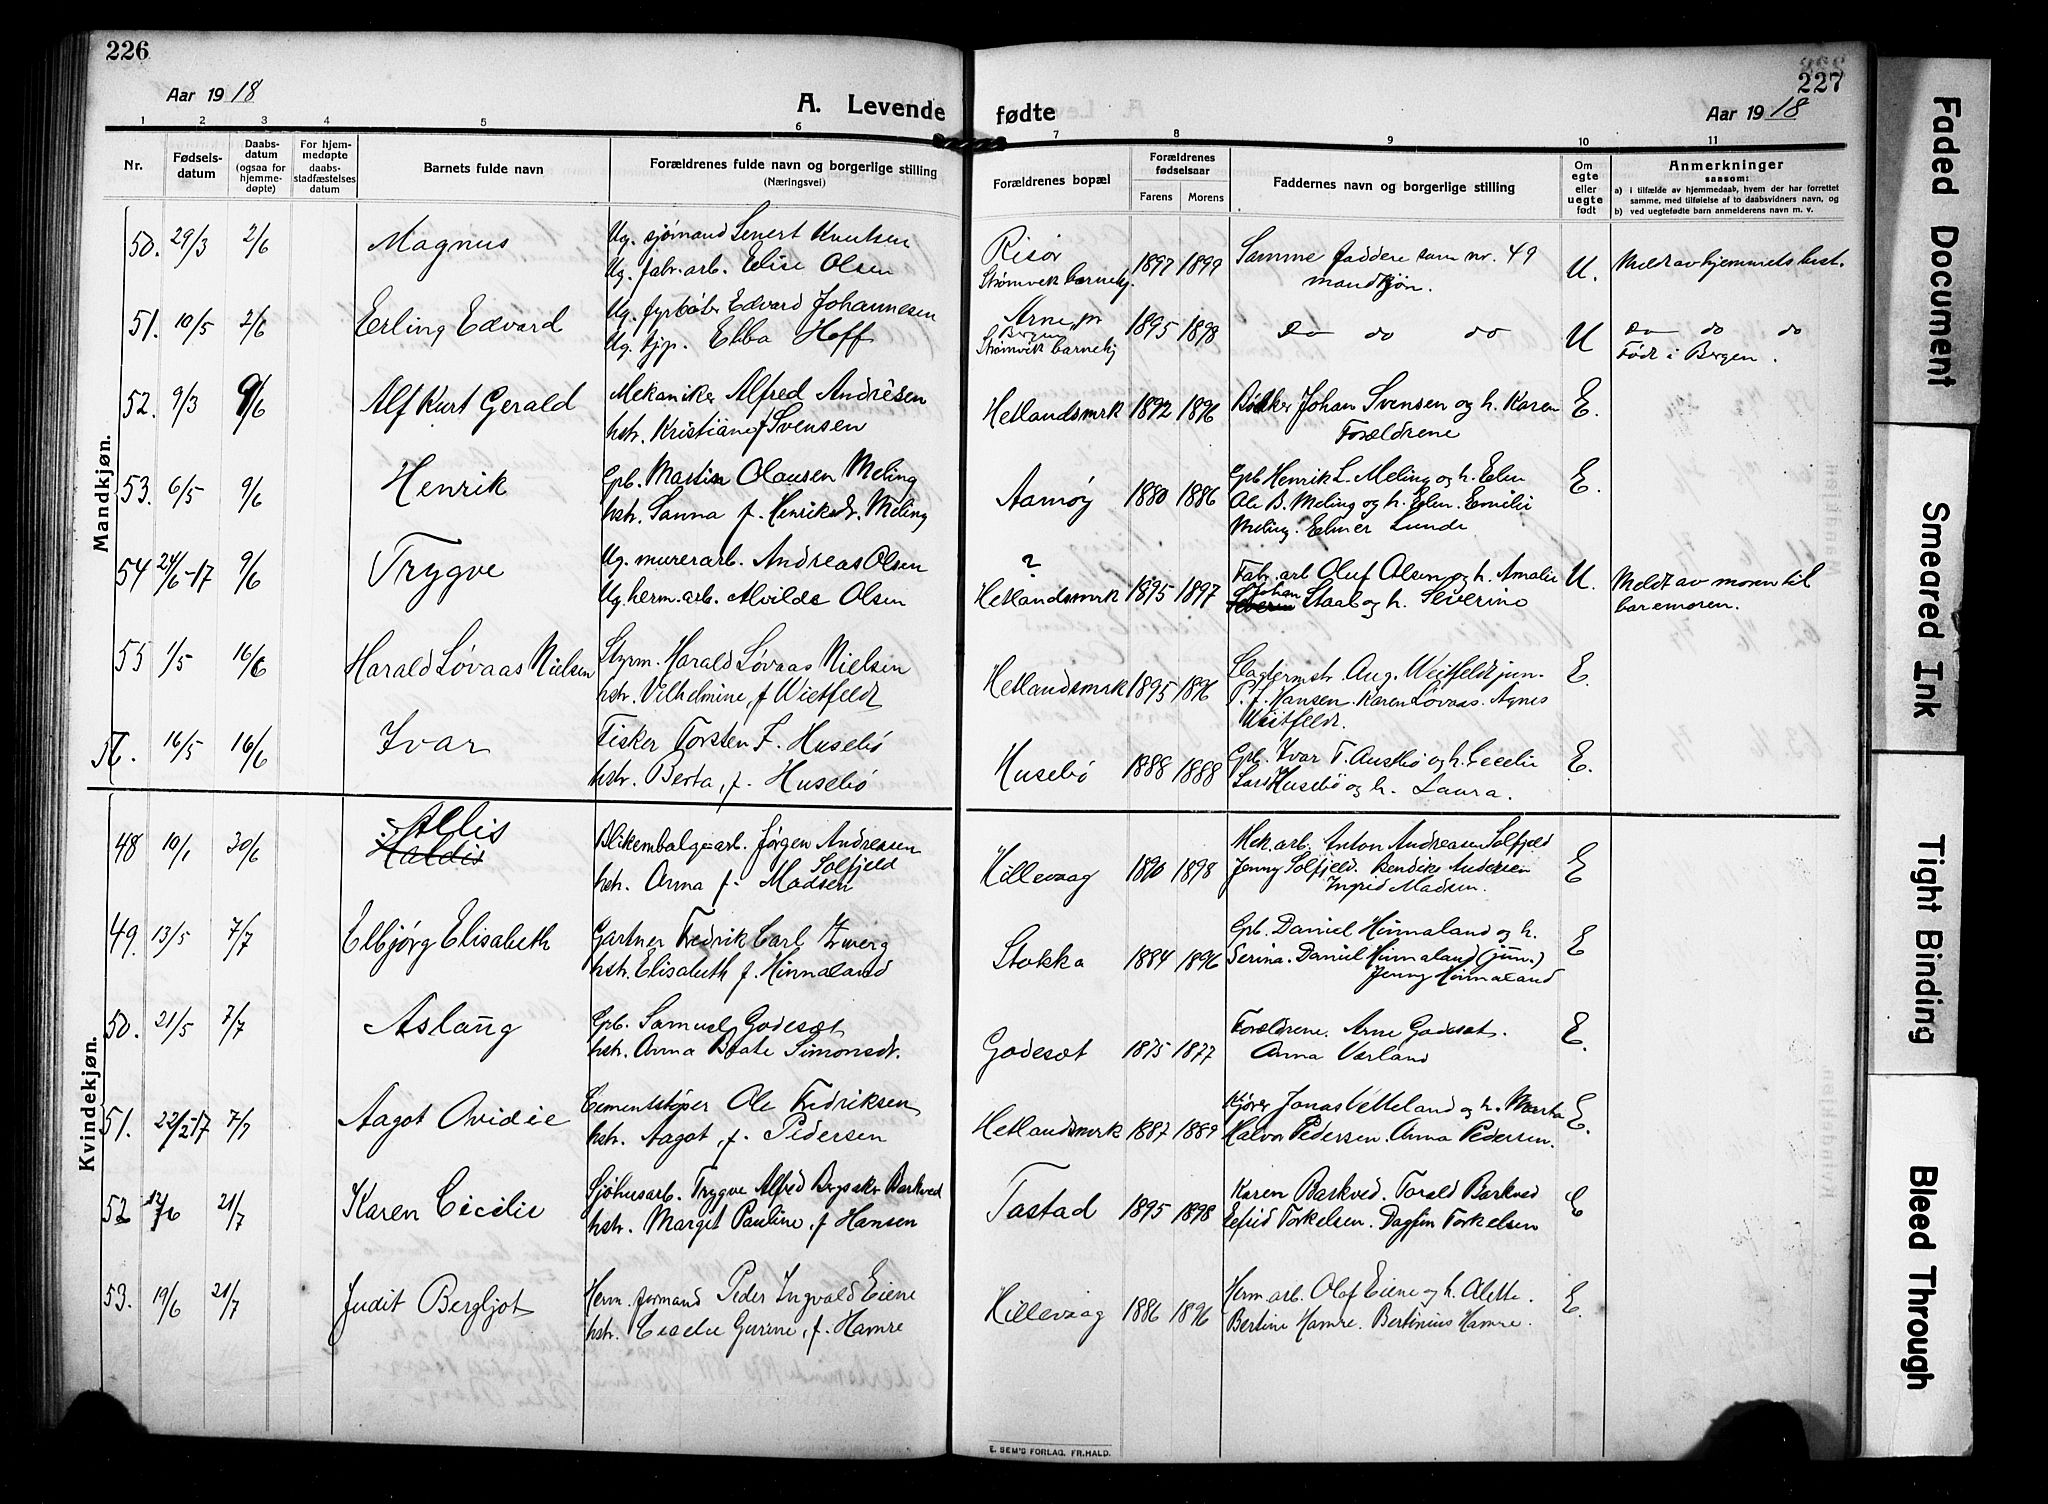 226
Aar 1918
A. Levende
1 2 3 4 5 6
Nr.
Fødsels-
datum
Daabs-
datum
(ogsaa for
hjemme-
døpte)
For hjem-
medøpte
daabs-
stadfæstelses
datum
Barnets fulde navn
Forældrenes fulde navn og borgerlige stilling
(Næringsvei)
Mandkjøn.
50. 29/3 2/6 Magnus Ug. sjømand Lenert Knutsen
Ug. fabr. arb. Elise Olsen
51. 10/5 2/6 Erling Edvard Ug. fyrbøter Edvard Johannesen
Ug. tjp. Ebba Hoff
52. 9/3 9/6 Alf Kurt Gerald Mekaniker Alfred Andrésen
hstr. Kristiane f Svensen
53. 6/5 9/6 Henrik Gpb. Martin Olausen Meling
hstr. Sanna f. Henriksdr. Meling
54 24/6-17 9/6 Trygve Ug. murerarb. Andreas Olsen
Ug. herm. arb. Alvilde Olsen
55 1/5 16/6 Harald Løvaas Nielsen Styrm. Harald Løvaas Nielsen
hstr. Vilhelmine, f Wietfeldt
56. 16/5 16/6 Ivar Fisker Torsten F. Husebø
hstr. Berta, f. Husebø
Kvindekjøn.
48 10/1 30/6 Allis
Haldis
Blikembalage arb. Jørgen Andressen
Solfjeld
hstr. Anna f. Madsen
49. 13/5 7/7 Elbjørg Elisabeth Gartner Fredrik Carl Zwerg
hstr. Elisabeth f. Hinnaland
50. 21/5 7/7 Aslaug Gpb. Samuel Godeset
hstr. Anna Beate Simonsdr.
51. 22/12-17 7/7 Aagot Ovidie Cementstøper Ole Fredriksen
hstr. Aagot, f. Pedersen
52 12/6 21/7 Karen Cecilie Sjøhusarb. Trygve Alfred Bersaker Barkved
hstr. Margit Pauline, f Hansen
53. 19/6 21/7 Judit Bergljot Herm. formand Peder Ingvald Eiene
hstr. Cecelie Gurine, f. Hamre
227
fødte
Aar 1918
7 8 9 10 11
Forældrenes bopæl
Forældrenes
fødselsaar
Farens Morens
Faddernes navn og borgerlige stilling
Om
egte
eller
uegte
født
Anmerkninger
saasom:
a) i tilfælde av hjemmedaab, hvem der har forrettet
samme, med tilføielse af to daabsvidners navn, og
b) ved uegtefødte barn anmelderens navn m. v.
Risør
Strømvik barnehj. 1897 1899 Samme faddere som nr. 49
mandkjøn. U. Meldt av hjemmets best.
Arne, pr
Bergen
Strømvik barnehj 1895 1898 do do do U do do do
Født i Bergen.
Hetlandsmrk 1892 1896 Bøkker Johan Svensen og h. Karen
Forældrene E.
Aamøy 1880 1886 Gpb Henrik L. Meling og h. Elen
Ole B. Meling og h. Elen. Emilie
Meling. Elmer Lunde E.
?
Hetlandsmrk 1895 1897 Fabr. arb Oluf Olsen og h. Amalie
Johan
Severin Staal og h. Severine U. Meldt av moren til
barnemoren.
Hetlandsmrk 1895 1896 Slagtermstr Aug. Weitfeldt jun.
P. J. Hansen. Karen Løvaas. Agnes
Weitfeldt. E.
Husebø 1888 1888 Gpb. Ivar T. Austbø og h. Cecelie
Lars Husebø og h. Laura. E.
Hillevaag 1890 1898 Mek. arb. Anton Andreasen Solfjeld
Jenny Solfjeld. Bendike Andersen
Ingrid Madsen. E
Stokka 1884 1896 Gpb. Daniel Hinnaland og h.
Serina. Daniel Hinnaland (jun.)
Jenny Hinnaland E
Godeset 1875 1877 Forældrene. Arne Godeset.
Anna Varland E.
Hetlandsmrk 1887 1889 Kjører Jonas Vetteland og h. Marta
Halvor Pedersen. Anna Pedersen. E.
Tastad 1895 1898 Karen Barkved. Torald Barkved
Elfrid Torkelsen. Dagfin Torkelsen E
Hillevaag 1886 1896 Herm. arb. Olaf Eiene og h. Alette.
Bertine Hamre. Bertinius Hamre. E.
E. SEM'S FORLAG, FR.HALD.
Faded Document
Smeared Ink
Tight Binding
Bleed Through